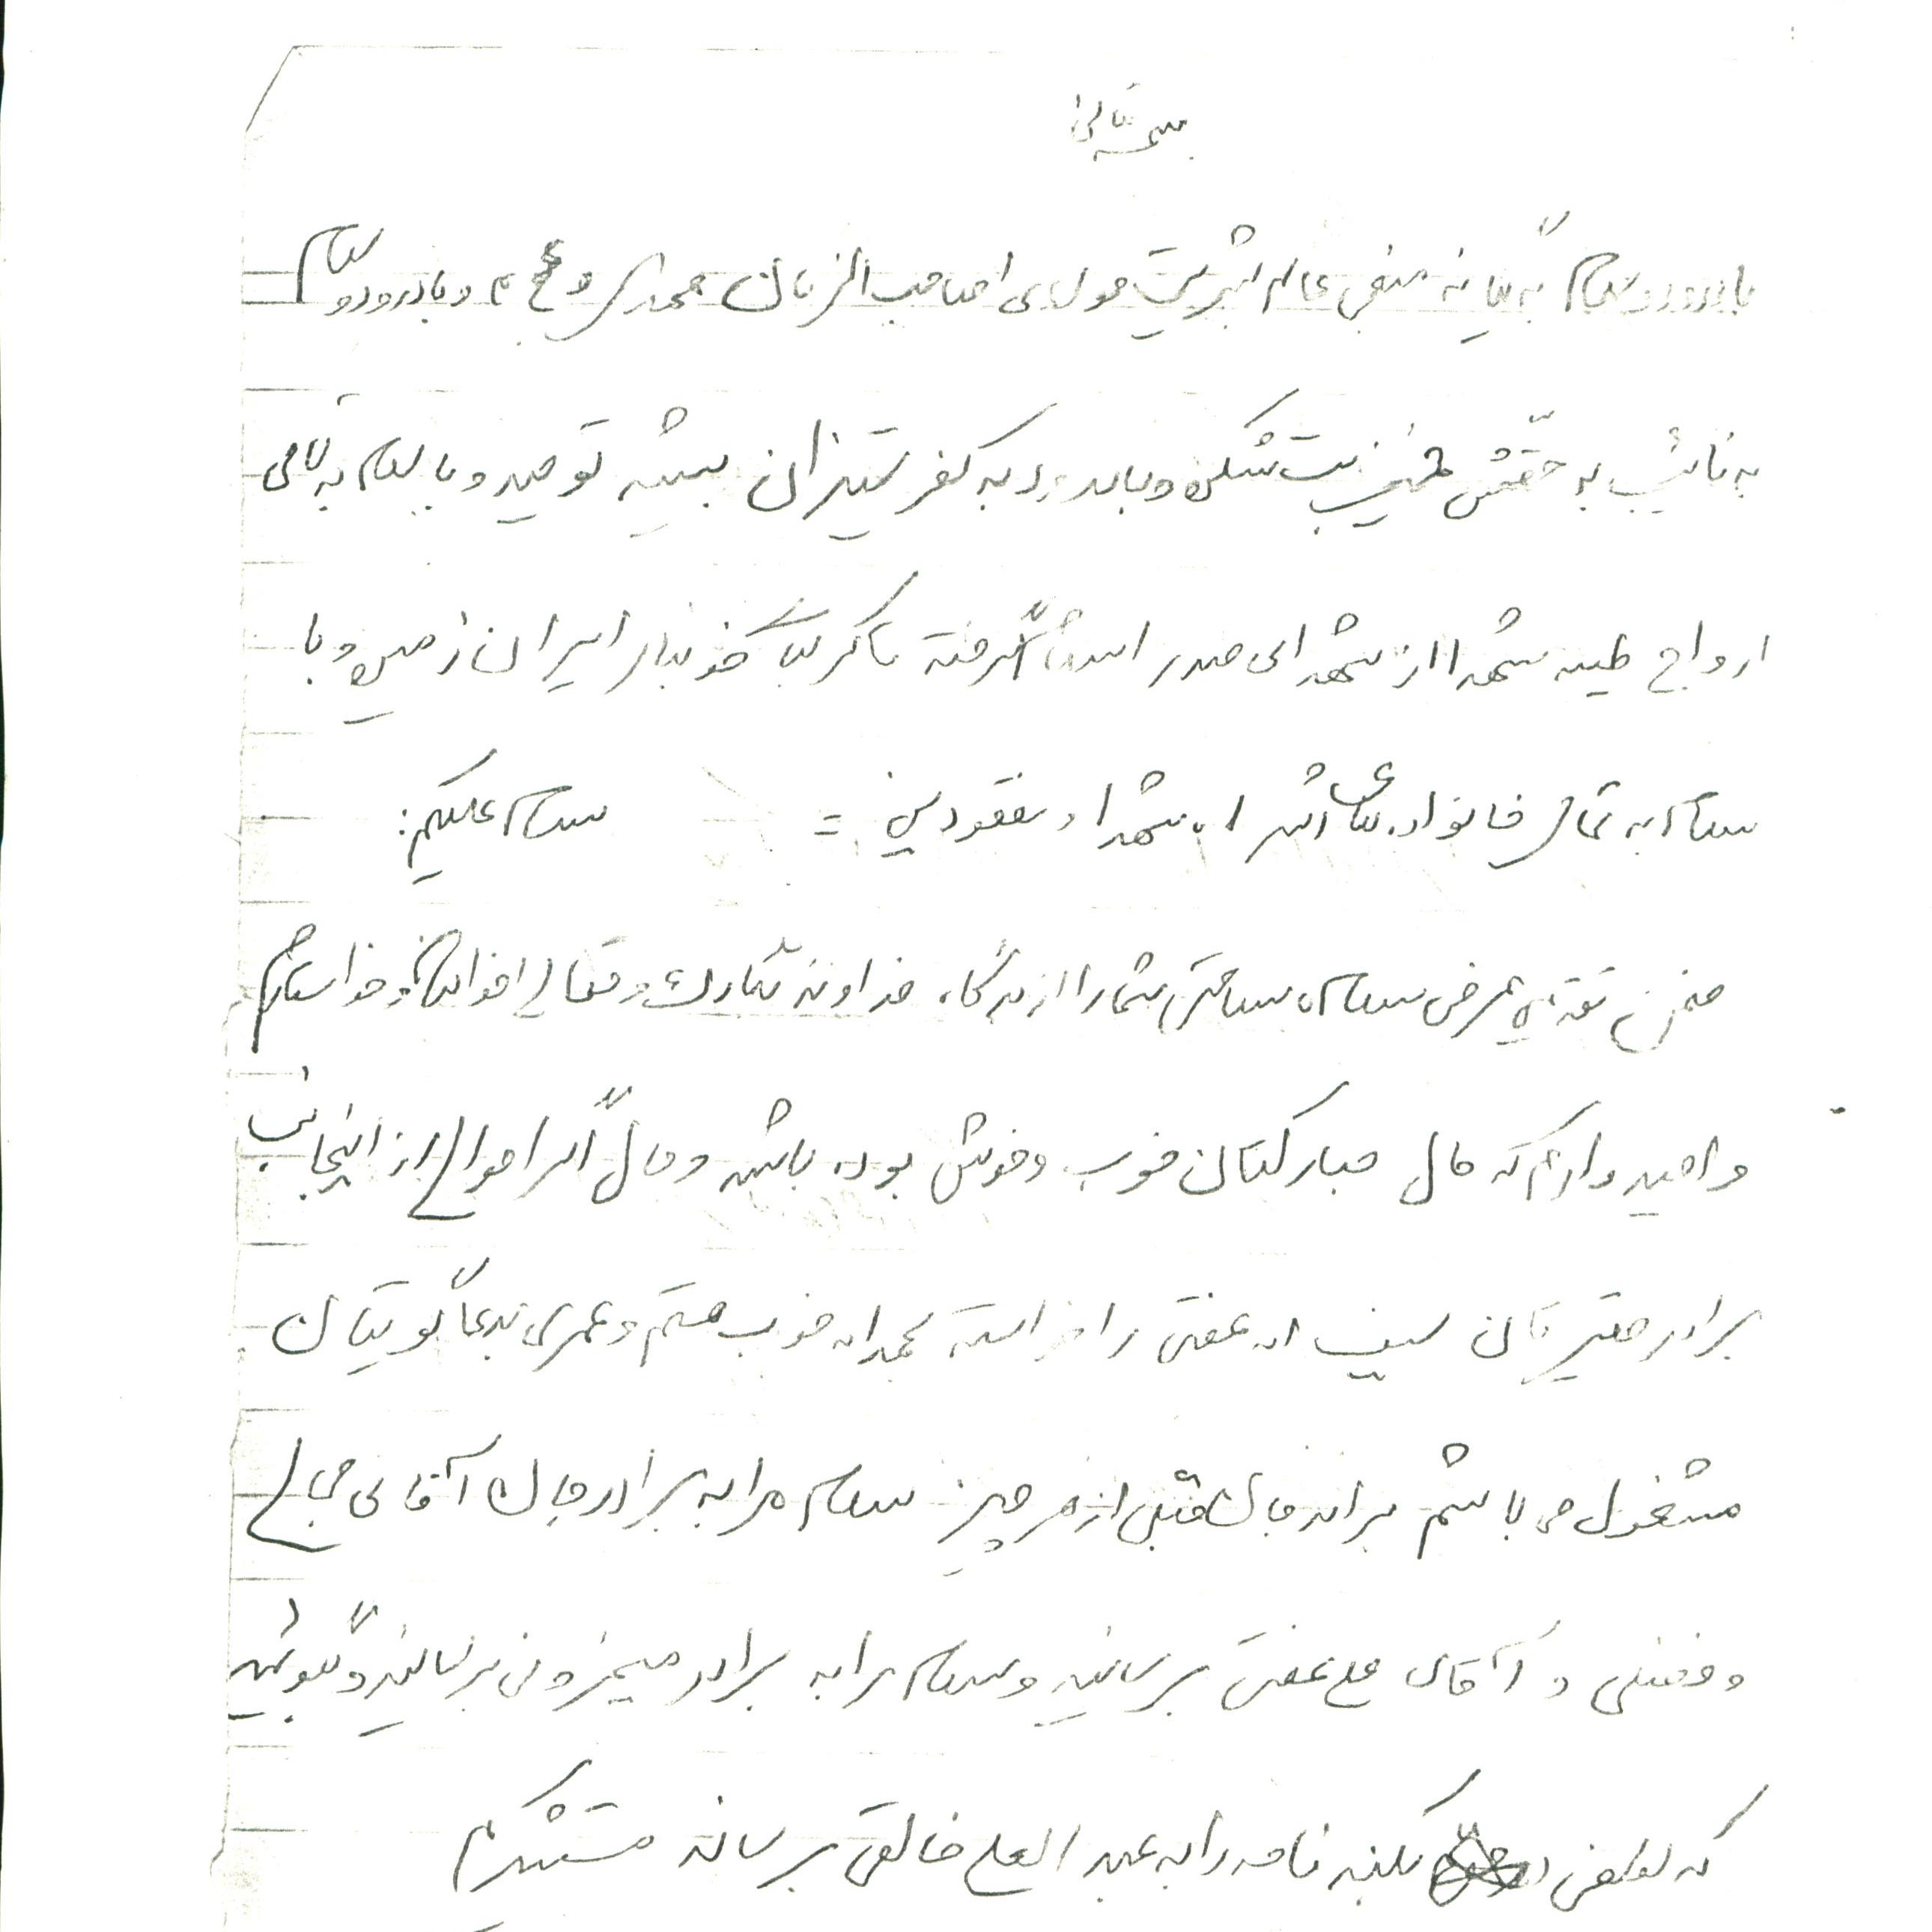 بسمه تعالی
با درود و سلام به یگانه منجی عالم بشریت مولای صاحب الزمان مهدی عج و با درود و سلام
به نائب به حقش خمینی بت شکن و با درود به کفر ستیزان بیشه توحید و با سلام به تمامی
ارواح طیبه شهدا از شهدای صدر اسلام گرفته تا کربلای خونبار ایران زمین و با
سلام به تمامی خانواده های اسرا، شهدا و مفقودین = سلام علیکم:
ضمن تقدیم عرض سلام سلامتی شما را از درگاه خداوند تبارک و تعالی خواهان و خواستارم
و امید وارم که حال مبارکتان خوب و خوش بوده باشد و حال اگر احوالی از اینجانب
برادر حقیرتان سیف اله عفتی را خواسته باشید بحمداله خوب هستم و بدعاگویتان
مشغول می باشم برادر جان قبل از هر چیز سلام مرا به برادر جان آقای
و فضلی و آقای علی عفتی برسانید و سلام مرا به برادر برسانید و بگوئید
که لطفی بکند نامه را به عبد العلی خالقی برساند متشکرم